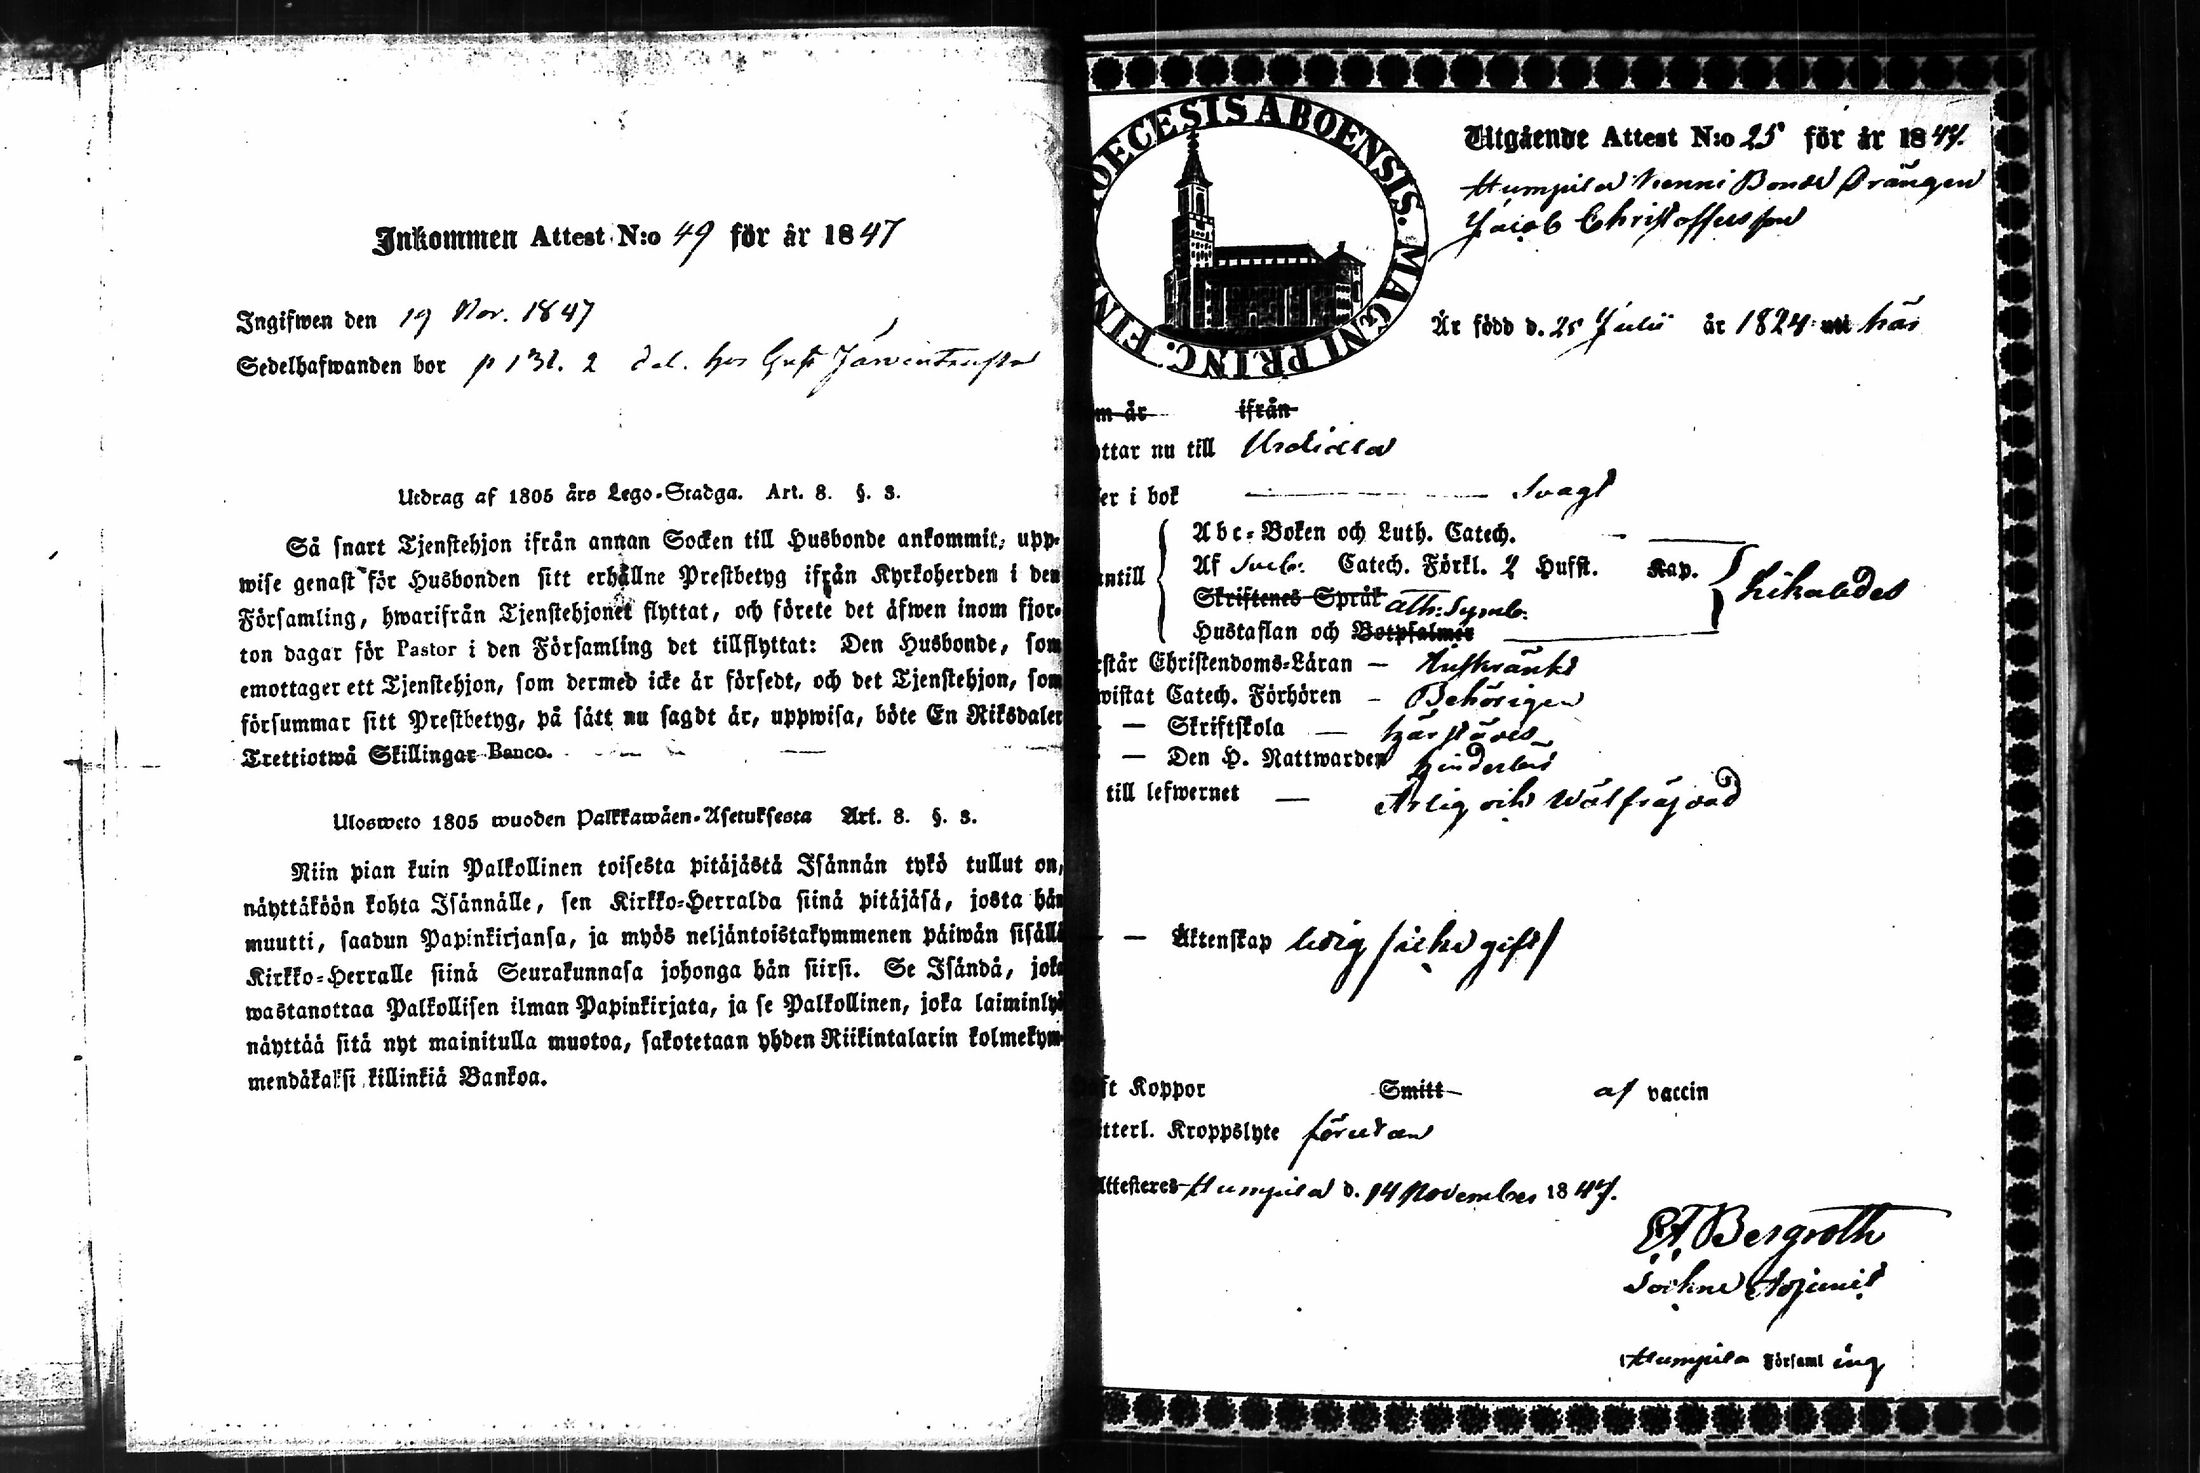 Inkommen Attest N:o 49 för år 1847
Ingifwen den 19 Nov. 1847
Sedelhafwanden bor p 131. 2 del. hos Gust
Utdrag af 1805 års Lego-Stadga. Art. 8. §. 3.
Så snart Tjenstehjon ifrån annan Socken till Husbonde ankommit, upp-
wise genast för Husbonden sitt erhållne Prestbetyg ifrån Kyrkoherden i den
Församling, hwarifrån Tjenstehjonet flyttat, och förete det äfwen inom fjor-
ton dagar för Pastor i den Församling det tillflyttat: Den Husbonde, som
emottager ett Tjenstehjon, som dermed icke är försedt, och det Tjenstehjon, som
försummar sitt Prestbetyg, på sätt nu sagdt är, uppwisa, böte En Riksdaler
Trettiotwå Skillingar Banco.
Ulosweto 1805 wuoden Palkkawäen-Asetuksesta Art. 8. §. 3.
Niin pian kuin Palkollinen toisesta pitäjästä Isännän tykö tullut on,
näyttäköön kohta Isännälle, sen Kirkko-Herralda siinä pitäjäsä, josta hän
muutti, saadun Papinkirjansa, ja myös neljäntoistakymmenen päiwän sisällä
Kirkko-Herralle siinä Seurakunnasa johonga hän siirsi. Se Isändä, joka
wastanottaa Palkollisen ilman Papinkirjata, ja se Palkollinen, joka laiminlyö
näyttää sitä nyt mainitulla muotoa, sakotetaan yhden Riikintalarin kolmekym-
mendäkaksi killinkiä Bankoa.
OECESIS ABOENSIS. MAGNI PRINC. FIN
Utgående Attest N:o 25 för år 1847.
Humpila Venni Bonde Drängen
Jacob Christoffersson
Är född d. 25 Julii år 1824 uti här
m år ifrån
ttar nu till Urdiala
er i bok Svagt
Abc-Boken och Luth. Catech.
antill Af Sveb. Catech. Förkl. 2 Husst. Kap. Likaledes
Skriftenes Språk Ath: Symb.
Hustaflan och Botpsalmer
rstår Christendoms-Läran — Inskränkt
wistat Catech. Förhören — Behörigen
— Skriftskola — härstädes
— Den H. Nattwarden hinderlös
till lefwernet — Ärlig och Wälfräjdad
— Äktenskap ledig /icke gift/
ft Koppor Smitt af vaccin
tterl. Kroppslyte förutan
Attesteres Humpila d. 14 November 1847.
Bergroth
Sockne Adjunct
Humpila Församling